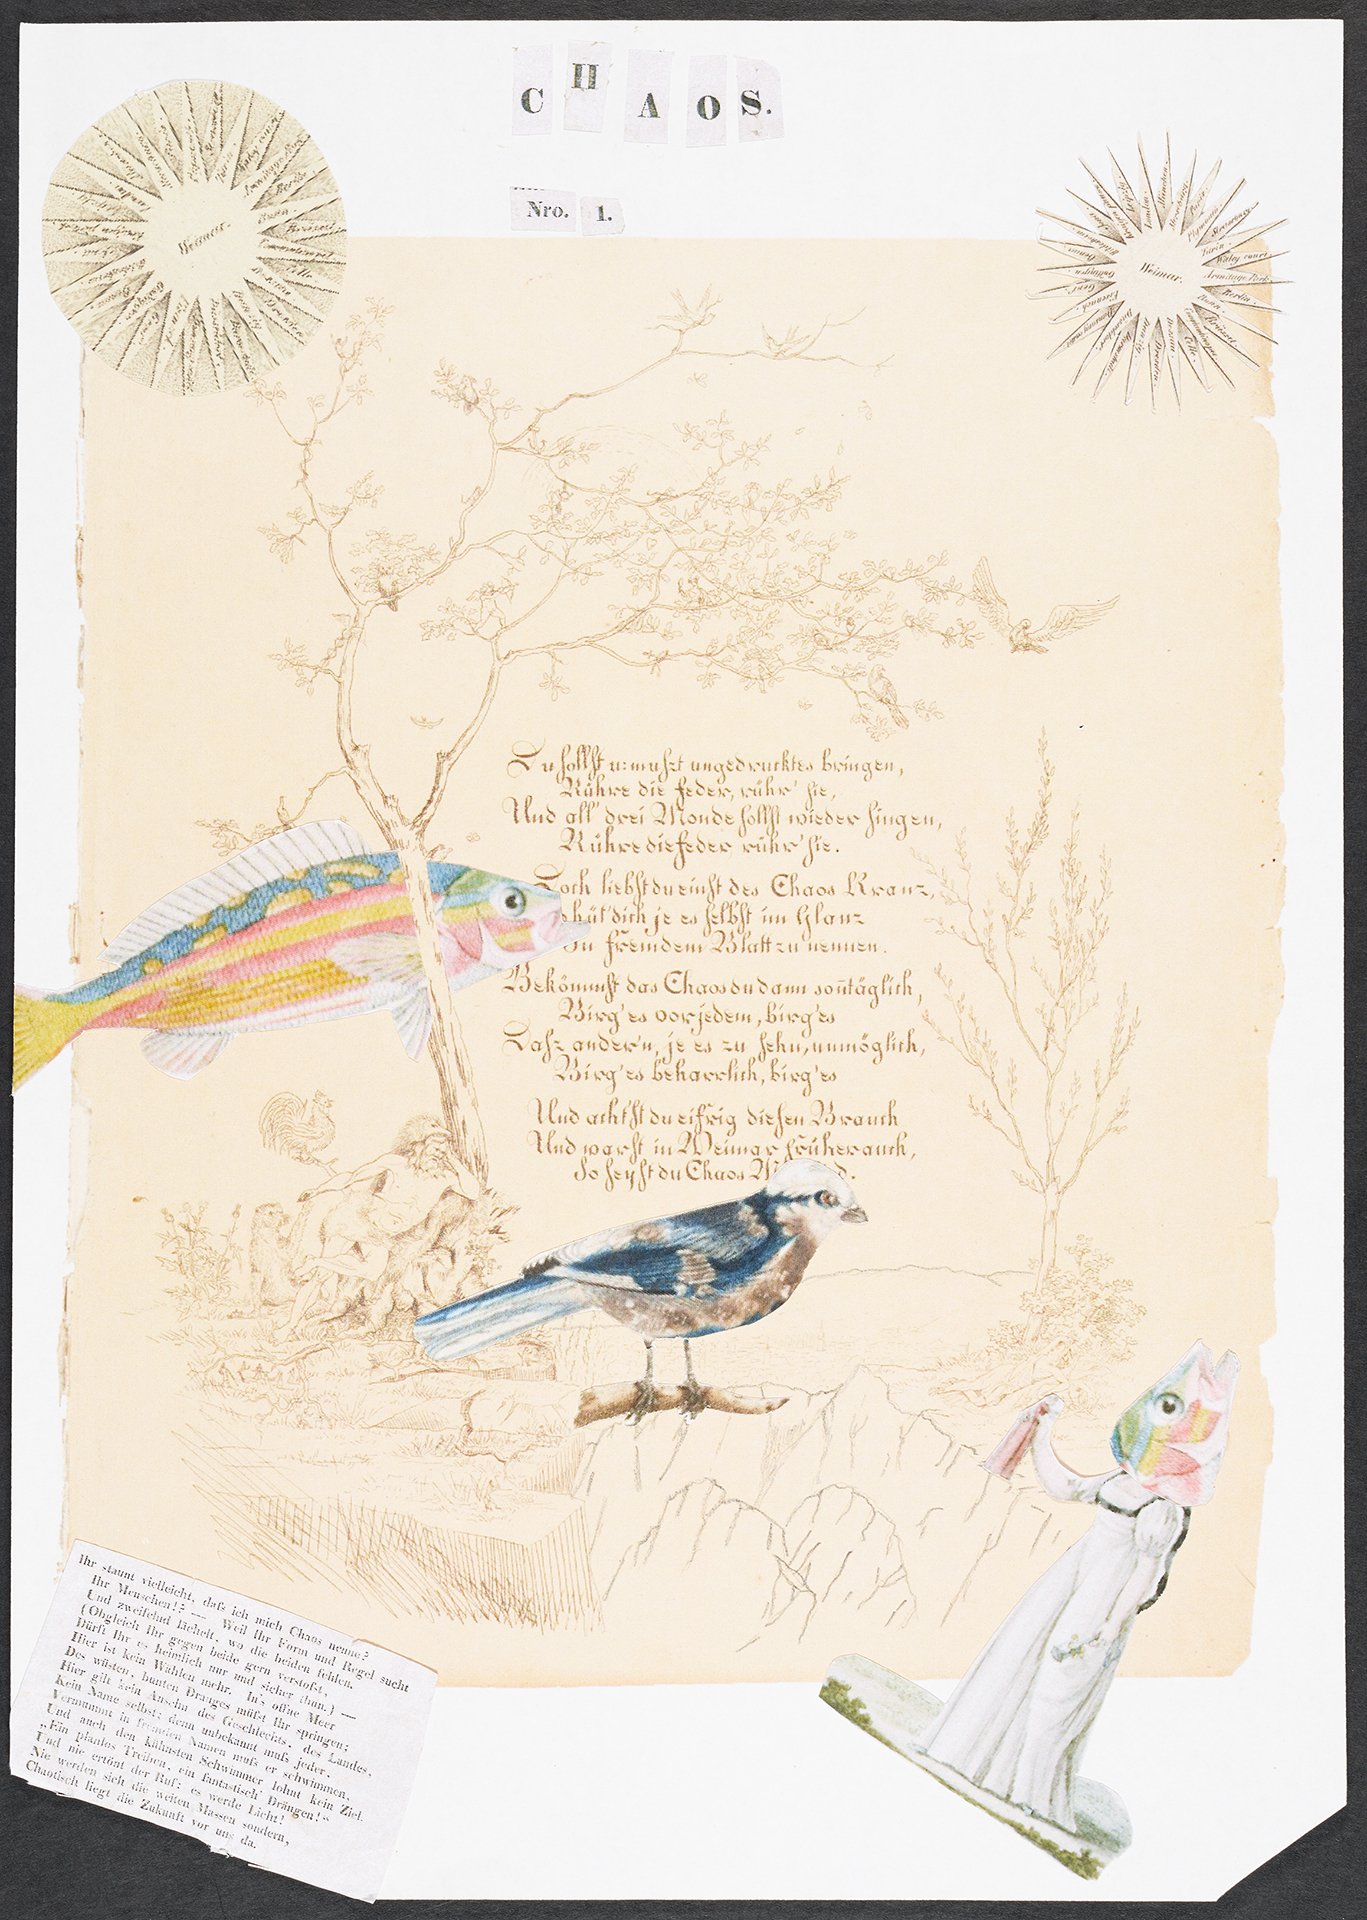 CHAOS.
Nro. 1.
Weimar.
Weimar.
London.
München.
Paris.
Plymouth.
Strasbourg.
Turin.
Berlin.
Bonn.
Celle.
Dessau.
Dresden.
Danzig.
Düsseldorf.
Eisenach.
Genf.
Du sollst u: mußt ungedrucktes bringen,
Rühre die Feder, rühr' sie,
Und all' drei Monde sollst wieder singen,
Rühre die Feder rühr' sie.
Doch liebst du einst des Chaos Kranz,
hüt' dich je es selbst im Glanz
In fremdem Blatt zu nennen.
Bekömmst das Chaos du dann sontäglich,
Birg' es vor jedem, birg' es
Daß ander'n, je es zu sehn, unmöglich,
Birg' es beharrlich, birg' es
Und acht'st du eifrig diesen Brauch
Und warst in Weimar früher auch,
So seyst du Chaos
Ihr staunt vielleicht, daſs ich mich Chaos nenne?
Ihr Menschen!? — Weil Ihr Form und Regel sucht
Und zweifelnd lächelt, wo die beiden fehlen.
(Obgleich Ihr gegen beide gern verstoſst,
Dürft Ihr es heimlich nur und sicher thun.) —
Hier ist kein Wählen mehr. In's offne Meer
Des wüsten, bunten Dranges müſst Ihr springen;
Hier gilt kein Ansehn des Geschlechts, des Landes,
Kein Name selbst; denn unbekannt muſs jeder,
Vermummt in fremden Namen muſs er schwimmen,
Und auch den kühnsten Schwimmer lohnt kein Ziel.
„Ein planlos Treiben, ein fantastisch Drängen!“
Und nie ertönt der Ruf: es werde Licht!
Nie werden sich die weiten Massen sondern,
Chaotisch liegt die Zukunft vor uns da.